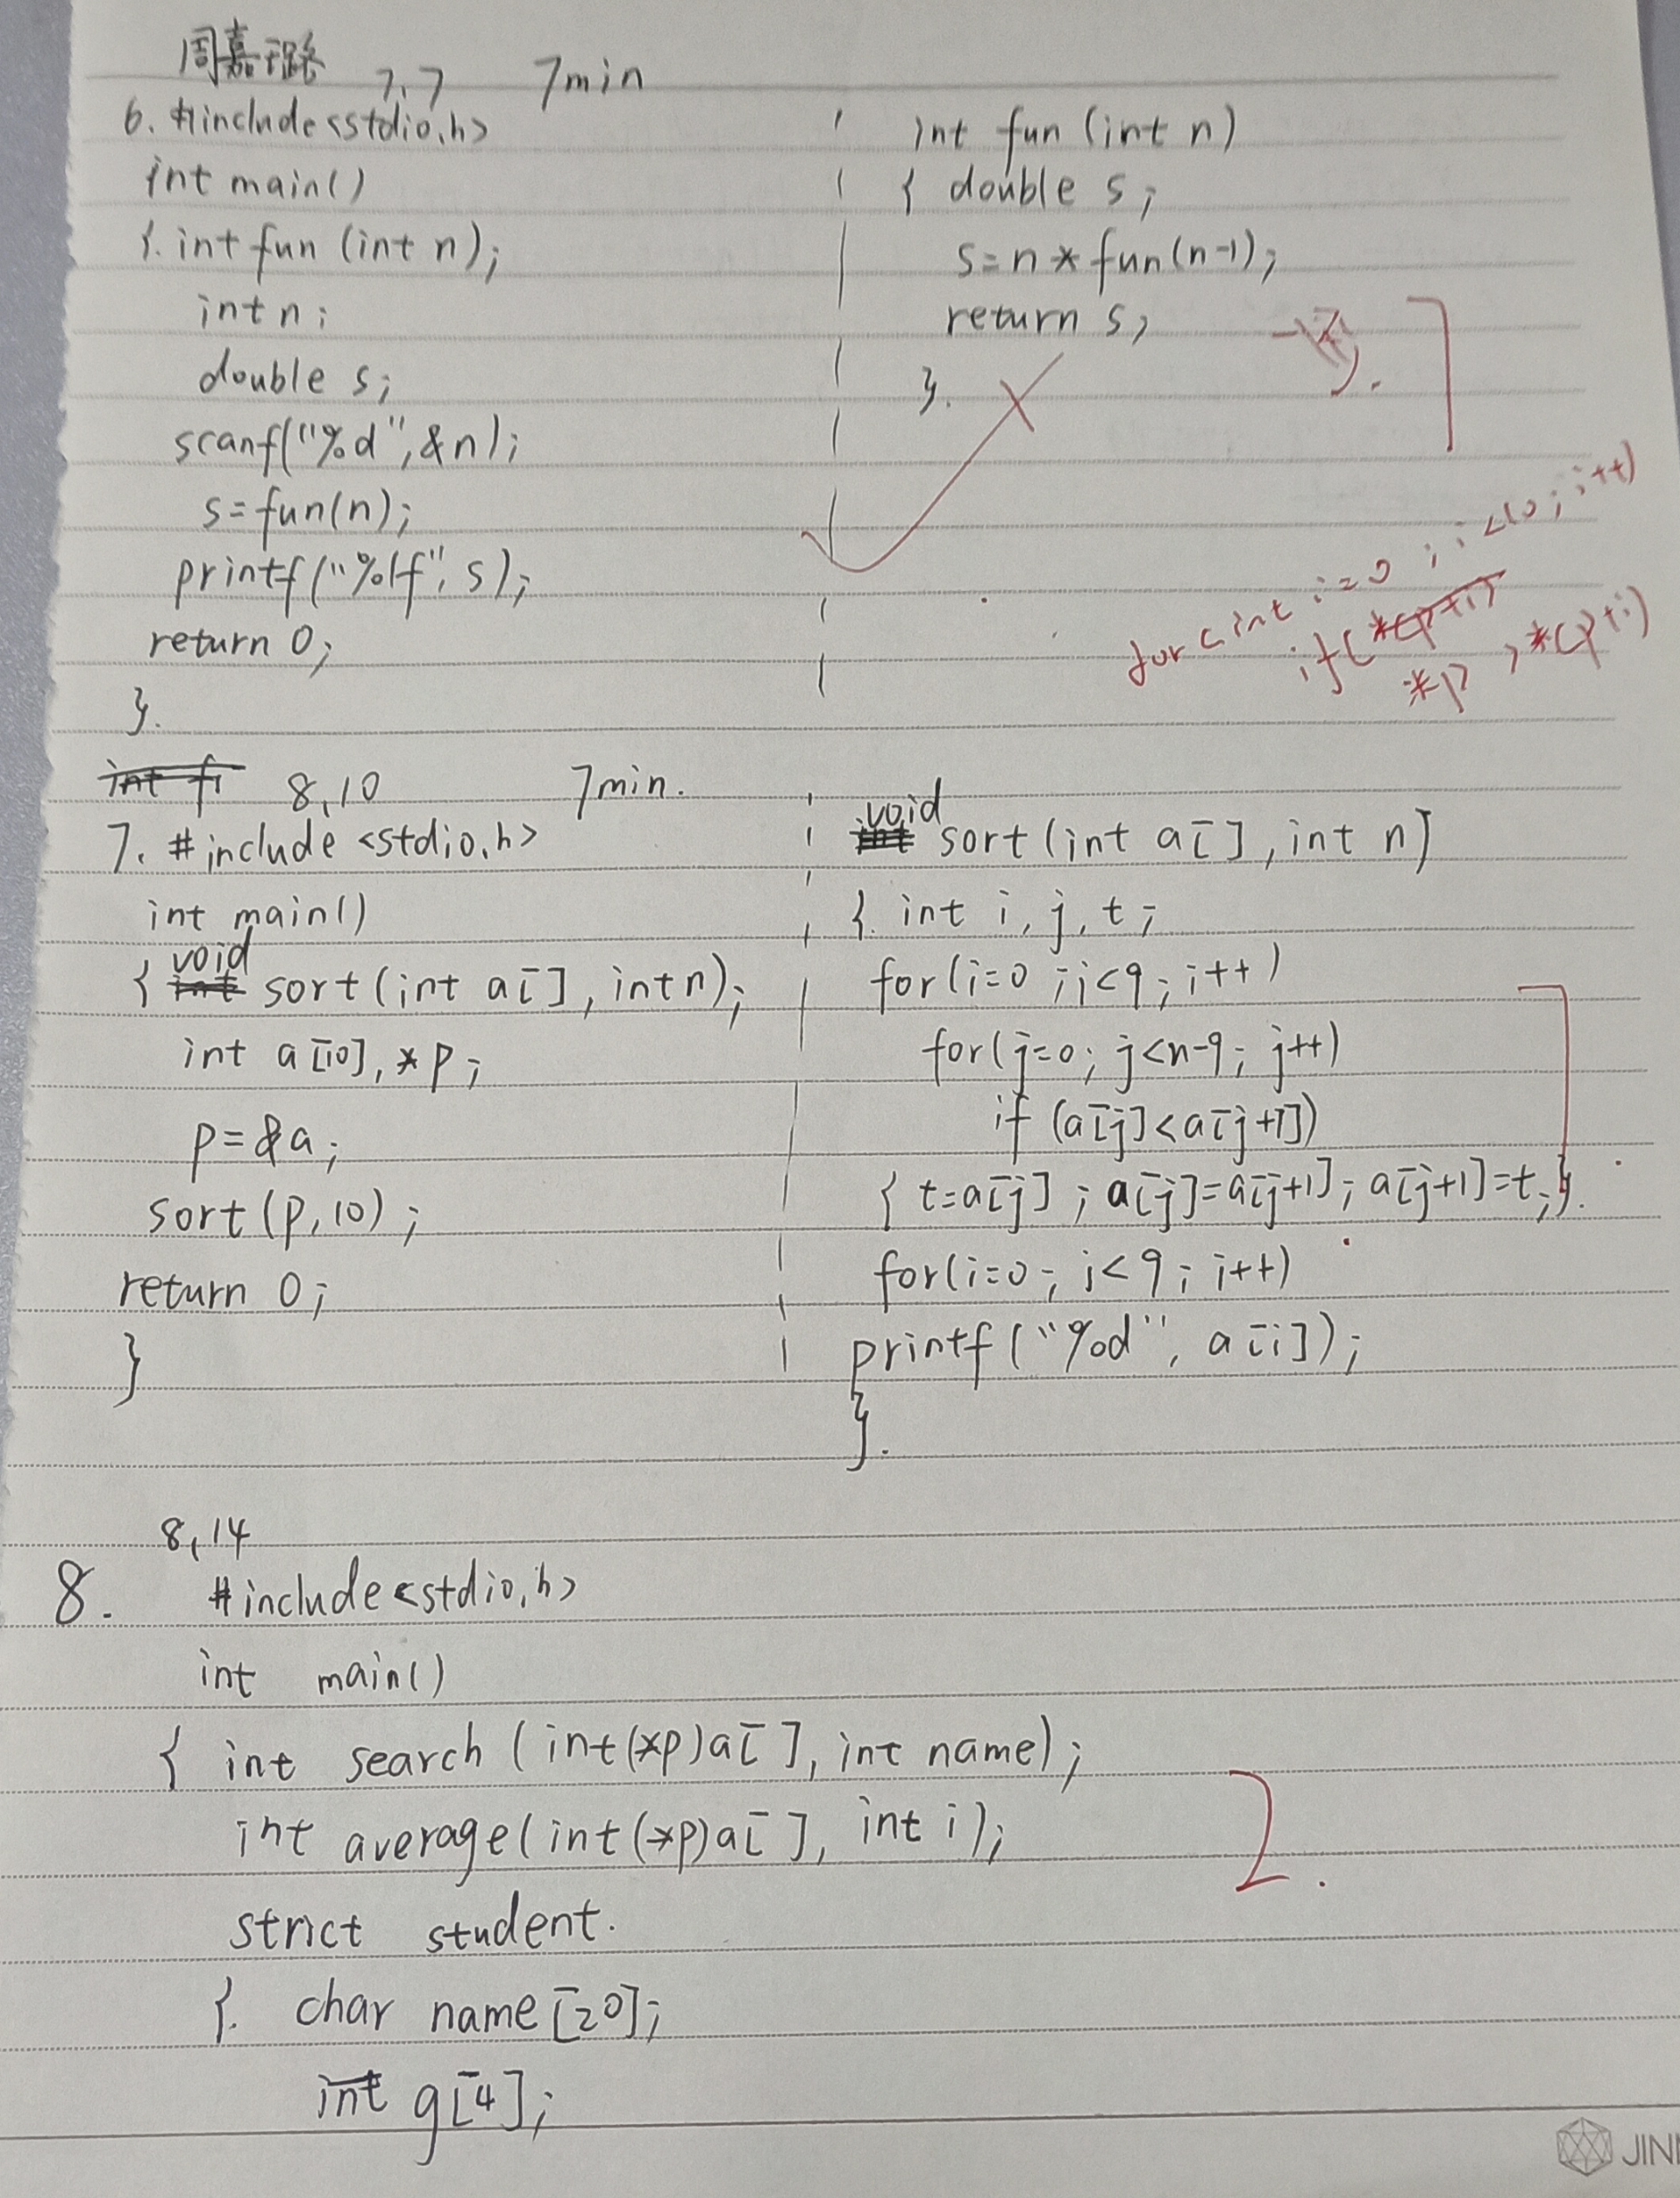 周嘉璐
7.7 7min
6. #include<stdio.h>
int main()
{. int fun (int n);
int n;
double s;
scanf("%d",&n);
s=fun(n);
printf("%lf", s);
return 0;
}.
int fun (int n)
{ double s;
s=n*fun(n-1);
return s;
}.
for < int i=0 ; i<10 ; i++)
if( *(p+i)
*p , *(p+i)
int f 8,10 7min.
7. #include <stdio.h>
int main()
void
{ int sort (int a[], int n);
int a[10], *p;
p=&a;
sort (p,10);
return 0;
}
void
int sort (int a[], int n)
{. int i, j, t;
for(i=0 ;i<9; i++)
for(j=0; j<n-9; j++)
if (a[j]<a[j+1])
{ t=a[j] ; a[j]=a[j+1]; a[j+1]=t;}.
for(i=0; i<9; i++)
printf("%d", a[i]);
}.
8,14
8. #include<stdio.h>
int main()
{ int search (int(*p)a[], int name);
int average(int(*p)a[], int i);
strict student.
{. char name[20];
int g[4];
JIN